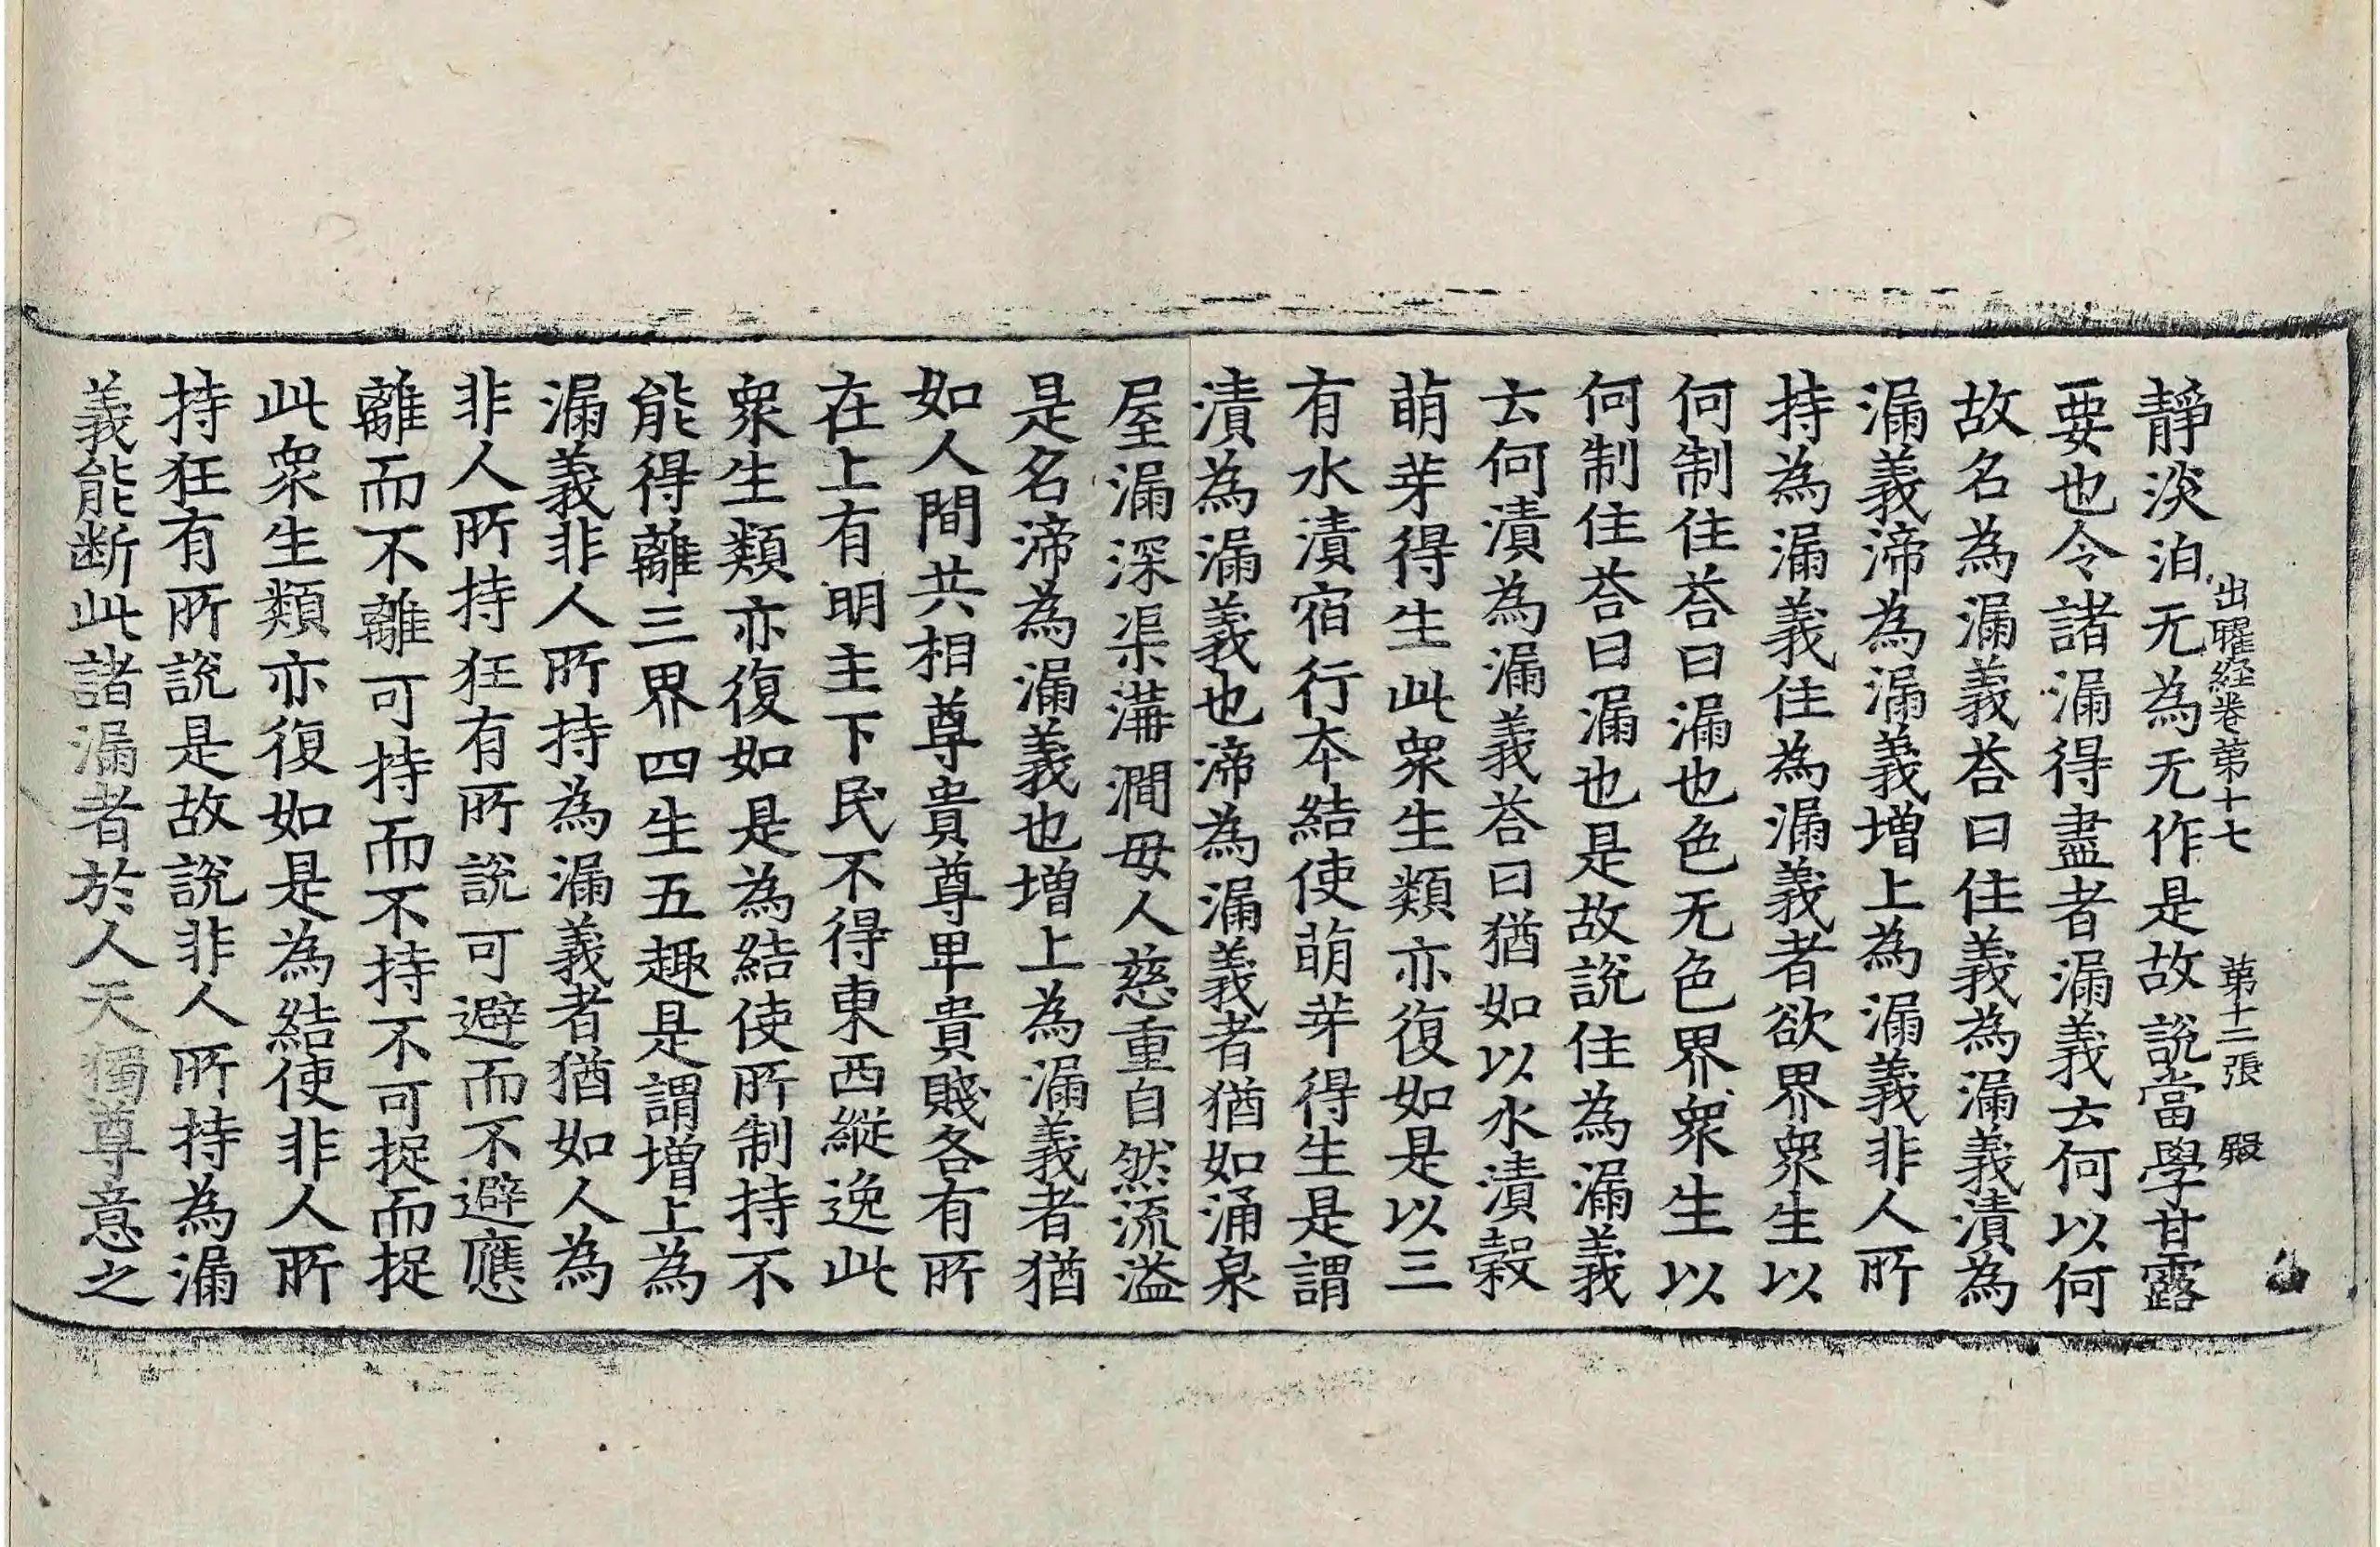 靜淡泊无為无作是故說當學甘露
出曜経卷第十七 第十二張 殿
要也令諸漏得盡者漏義云何以何
故名為漏義荅曰住義為漏義漬為
漏義渧為漏義增上為漏義非人所
持為漏義住為漏義者欲界眾生以
何制住荅曰漏也色无色界眾生以
何制住荅曰漏也是故說住為漏義
去何漬為漏義荅曰猶如以水漬穀
萌芽得生此眾生類亦復如是以三
有水漬宿行本結使萌芽得生是謂
漬為漏義也渧為漏義者猶如涌泉
屋漏深渠溝澗毋人慈重自然流溢
是名渧為漏義也增上為漏義者猶
如人間共相尊貴尊卑貴賤各有所
在上有明主下民不得東西縱逸此
眾生類亦復如是為結使所制持不
能得離三界四生五趣是謂增上為
漏義非人所持為漏義者猶如人為
非人所持狂有所說可避而不避應
離而不離可持而不持不可捉而捉
此眾生類亦復如是為結使非人所
持狂有所說是故說非人所持為漏
義能断此諸漏者於人天獨尊意之